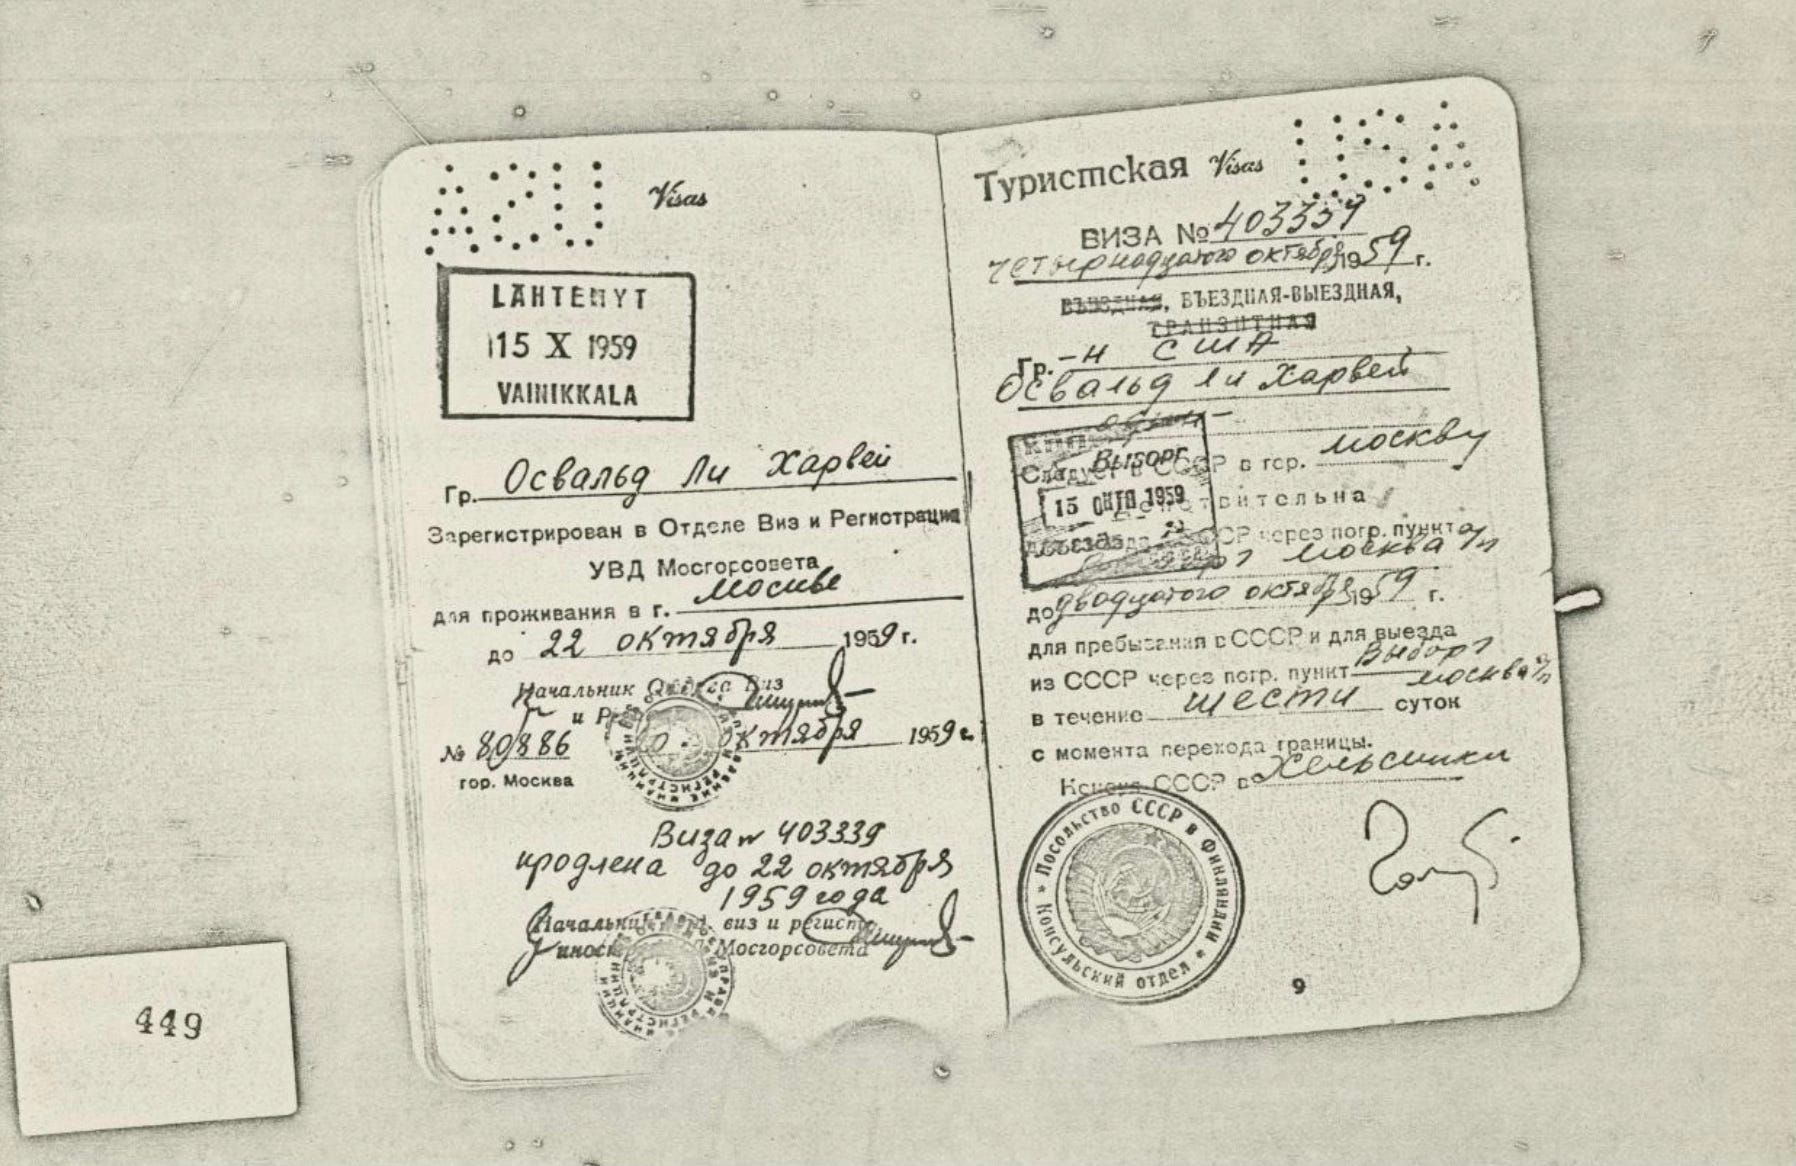 Visas
LÄHTENYT
15 X 1959
VAINIKKALA
Гр. Освальд Ли Харвей
Зарегистрирован в Отделе Виз и Регистрации
УВД Мосгорсовета
для проживания в г. Москве
до 22 октября 1959 г.
Начальник Отдела Виз
и
№ 80886 октября 1959 г.
гор. Москва
Виза № 403339
продлена до 22 октября
1959 года
Начальник виз и регистр
иност Мосгорсовета
Туристская Visas USA
ВИЗА № 403339
четырнадцатого октября 1959 г.
ВЪЕЗДНАЯ, ВЪЕЗДНАЯ-ВЫЕЗДНАЯ,
ТРАНЗИТНАЯ
Гр.-н США
Освальд Ли Харвей
один-
Следует в СССР в гор. Москву
Выборг
15 ОКТЯ 1959
Действительна
для въезда в СССР через погр. пункт
Выборг Москва а/п
до двадцатого октября 1959 г.
для пребывания в СССР и для выезда
из СССР через погр. пункт Выборг
Москва а/п
в течение шести суток
с момента перехода границы.
Консул СССР в Хельсинки
Посольство СССР в Финляндии * Консульский отдел *
9
449